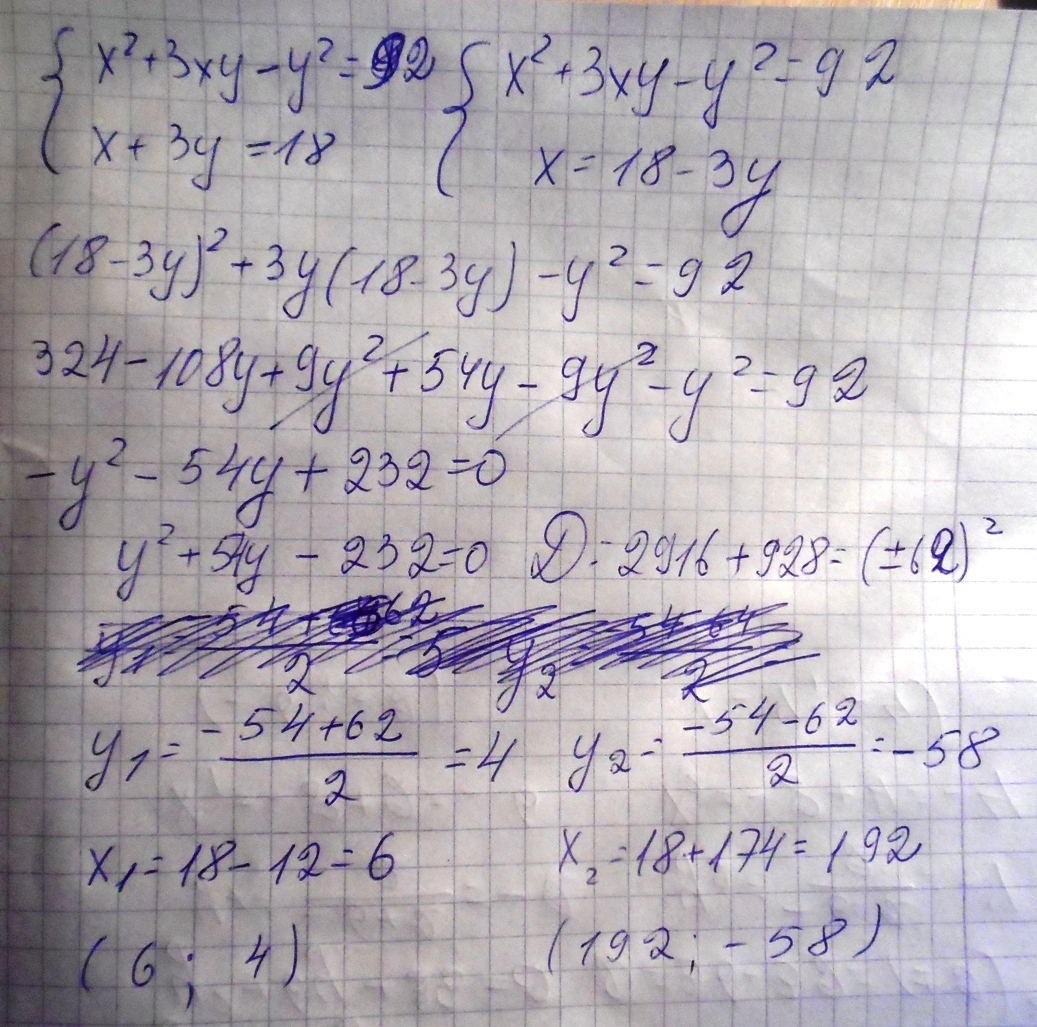 { x² + 3xy - y² = 92 { x² + 3xy - y² = 92
x + 3y = 18 x = 18 - 3y
(18 - 3y)² + 3y(18 - 3y) - y² = 92
324 - 108y + 9y² + 54y - 9y² - y² = 92
-y² - 54y + 232 = 0
y² + 54y - 232 = 0 D = 2916 + 928 = (±62)²
y₁ = (-54 + 62)/2 = 4 y₂ = (-54 - 62)/2 = -58
x₁ = 18 - 12 = 6 x₂ = 18 + 174 = 192
(6; 4) (192; -58)